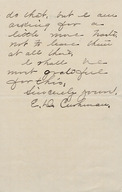 do that, but I am
asking for a
little more trust,
not to leave them
at all there.
I shall be
most grateful
for this,
Sincerely yours,
E. D. Cushman